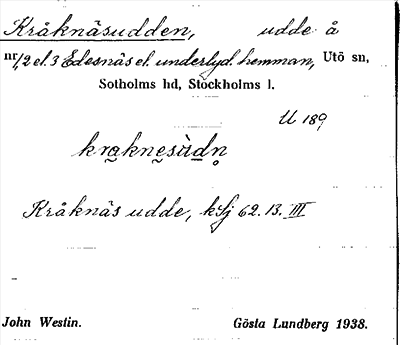 Kråknäsudden, udde å
nr 1, 2 el. 3 Edesnäs el. underlyd. hemman, Utö sn,
Sotholms hd, Stockholms l.
U 189
krąknesùdn̥
Kråknäs udde, ksj 62. 13. III
John Westin. Gösta Lundberg 1938.